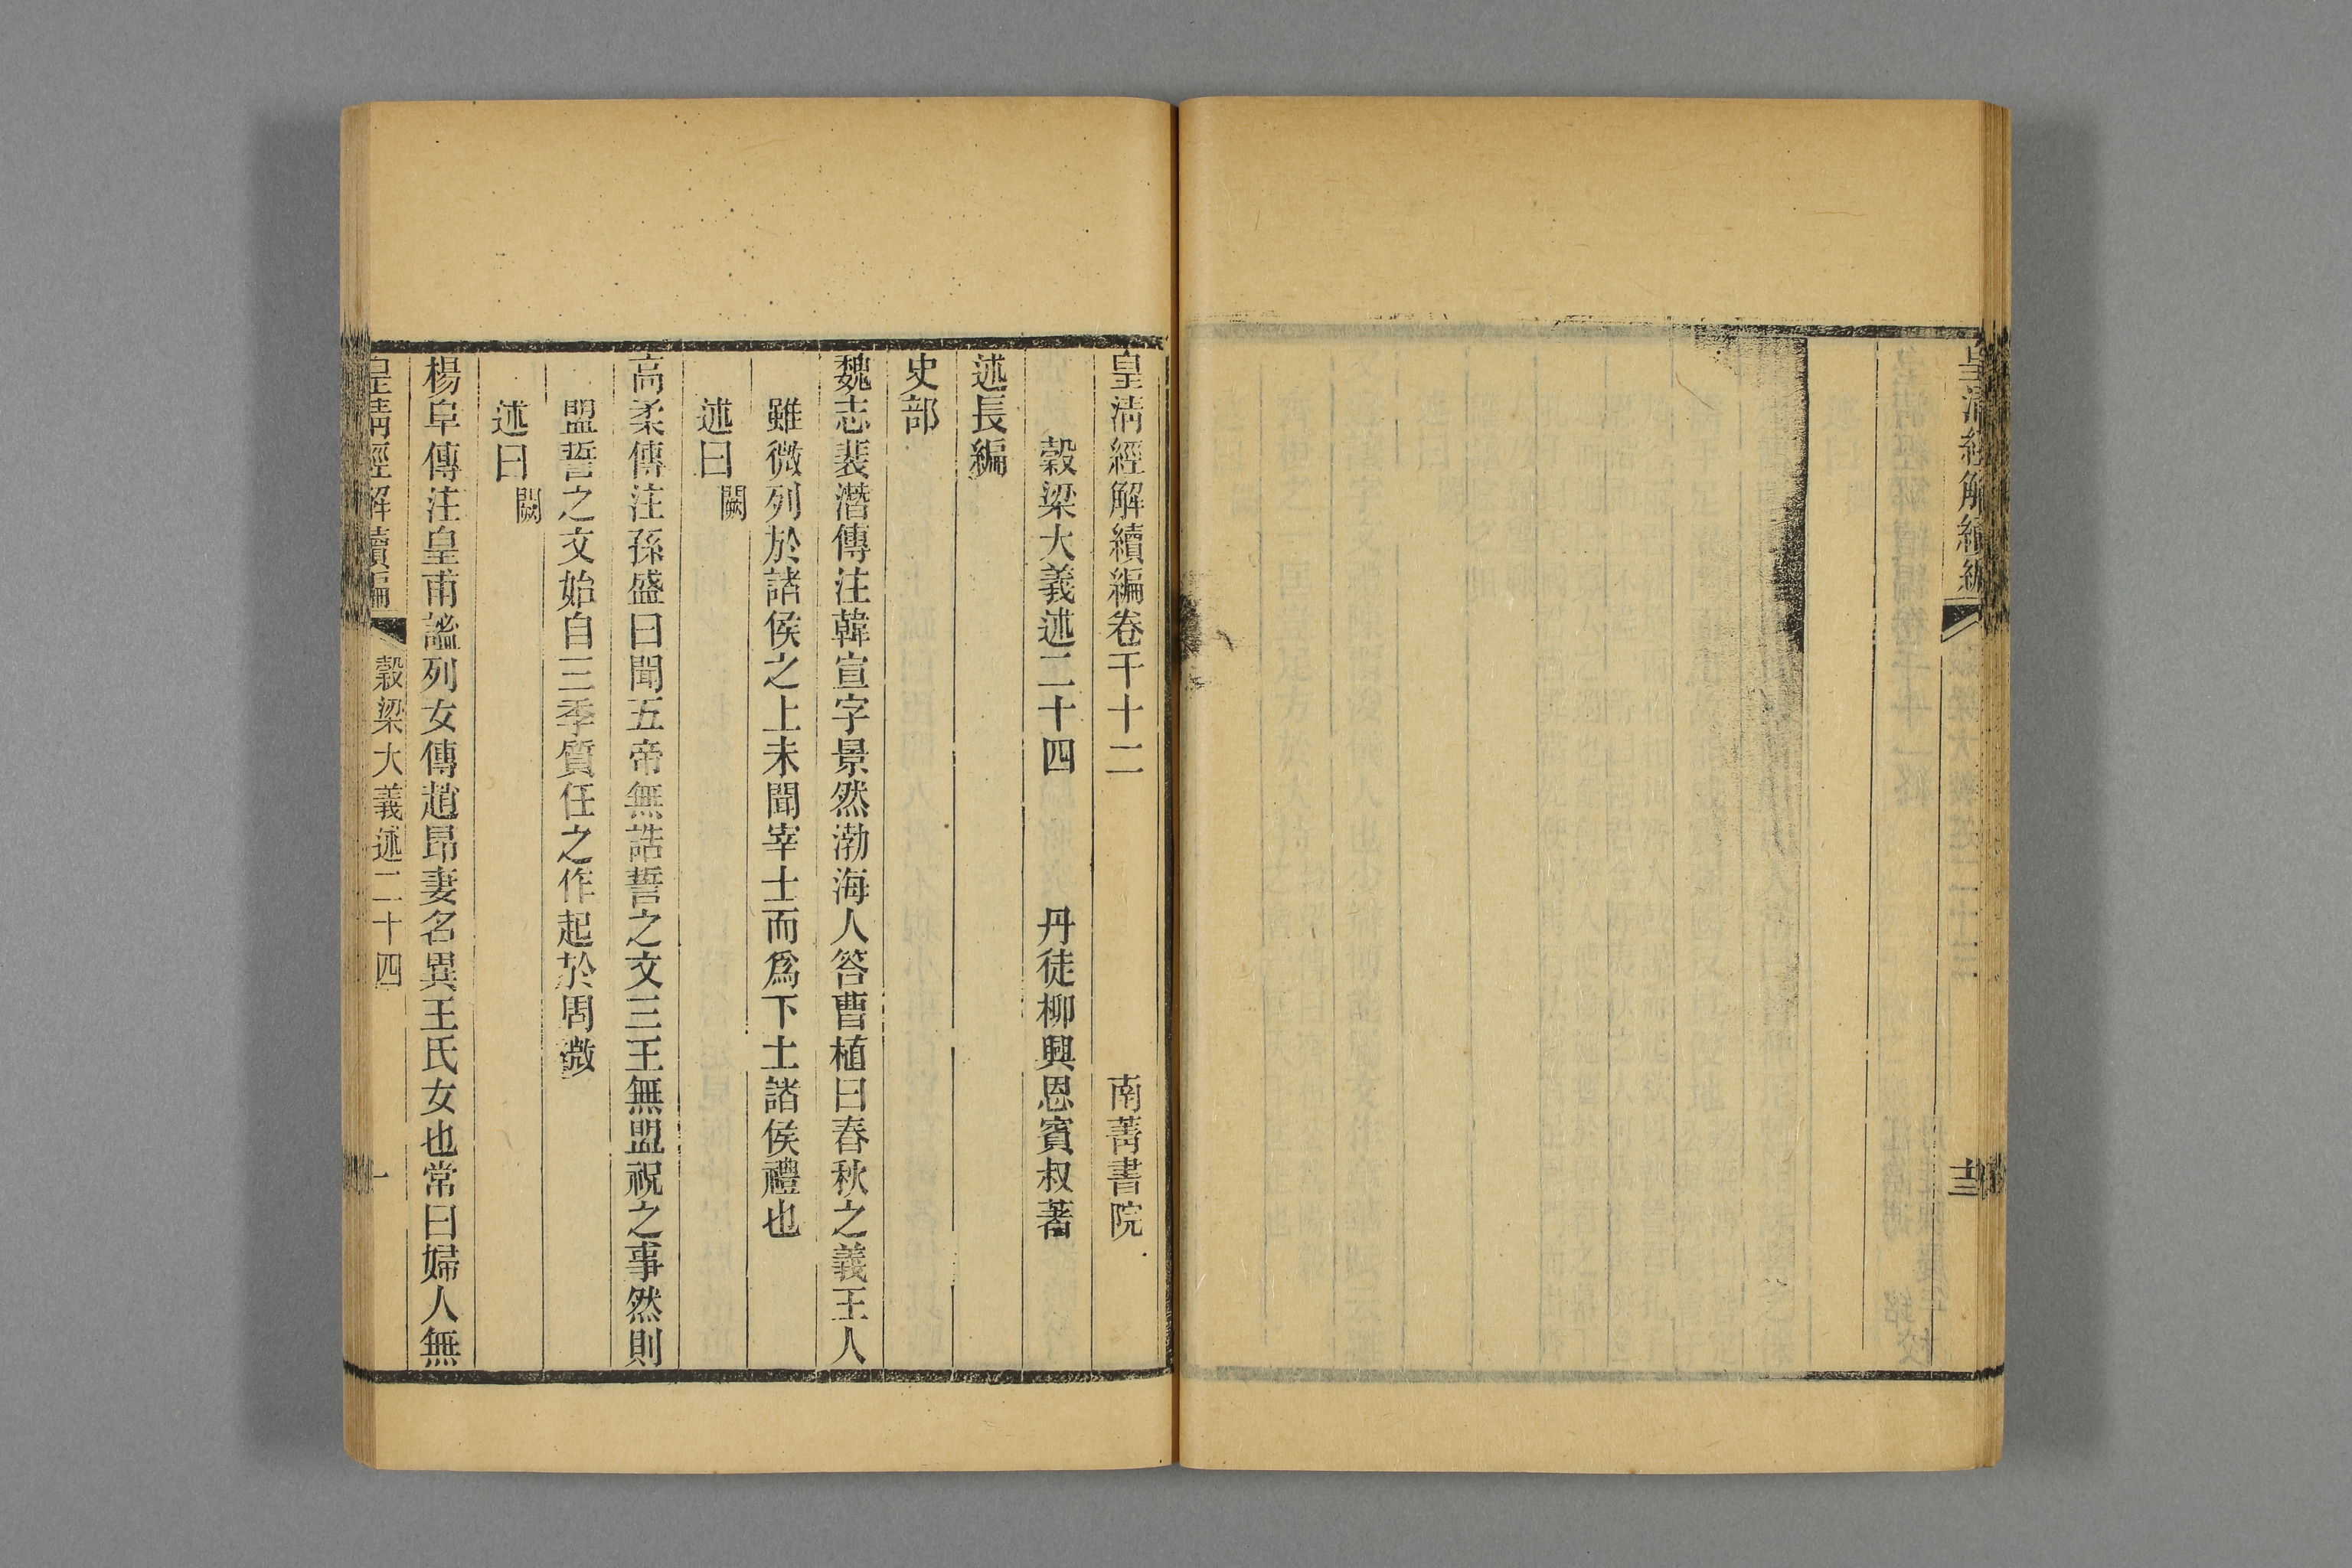 皇淸經解續編
十三
皇淸經解續編卷千十二
南菁書院
穀梁大義述二十四
丹徒柳興恩賓叔著
述長編
史部
魏志裴潛傳注韓宣字景然渤海人答曹植曰春秋之義王人
雖微列於諸侯之上未聞宰士而爲下士諸侯禮也
述曰闕
高柔傳注孫盛曰聞五帝無誥誓之文三王無盟祝之事然則
盟誓之文始自三季質任之作起於周微
述曰闕
楊阜傳注皇甫謐列女傳趙昂妻名異王氏女也常曰婦人無
皇淸經解續編
穀梁大義述二十四
一